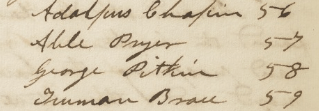 Adolphus Chapin 56
Able Pryer 57
George Pitkin 58
Truman Brace 59